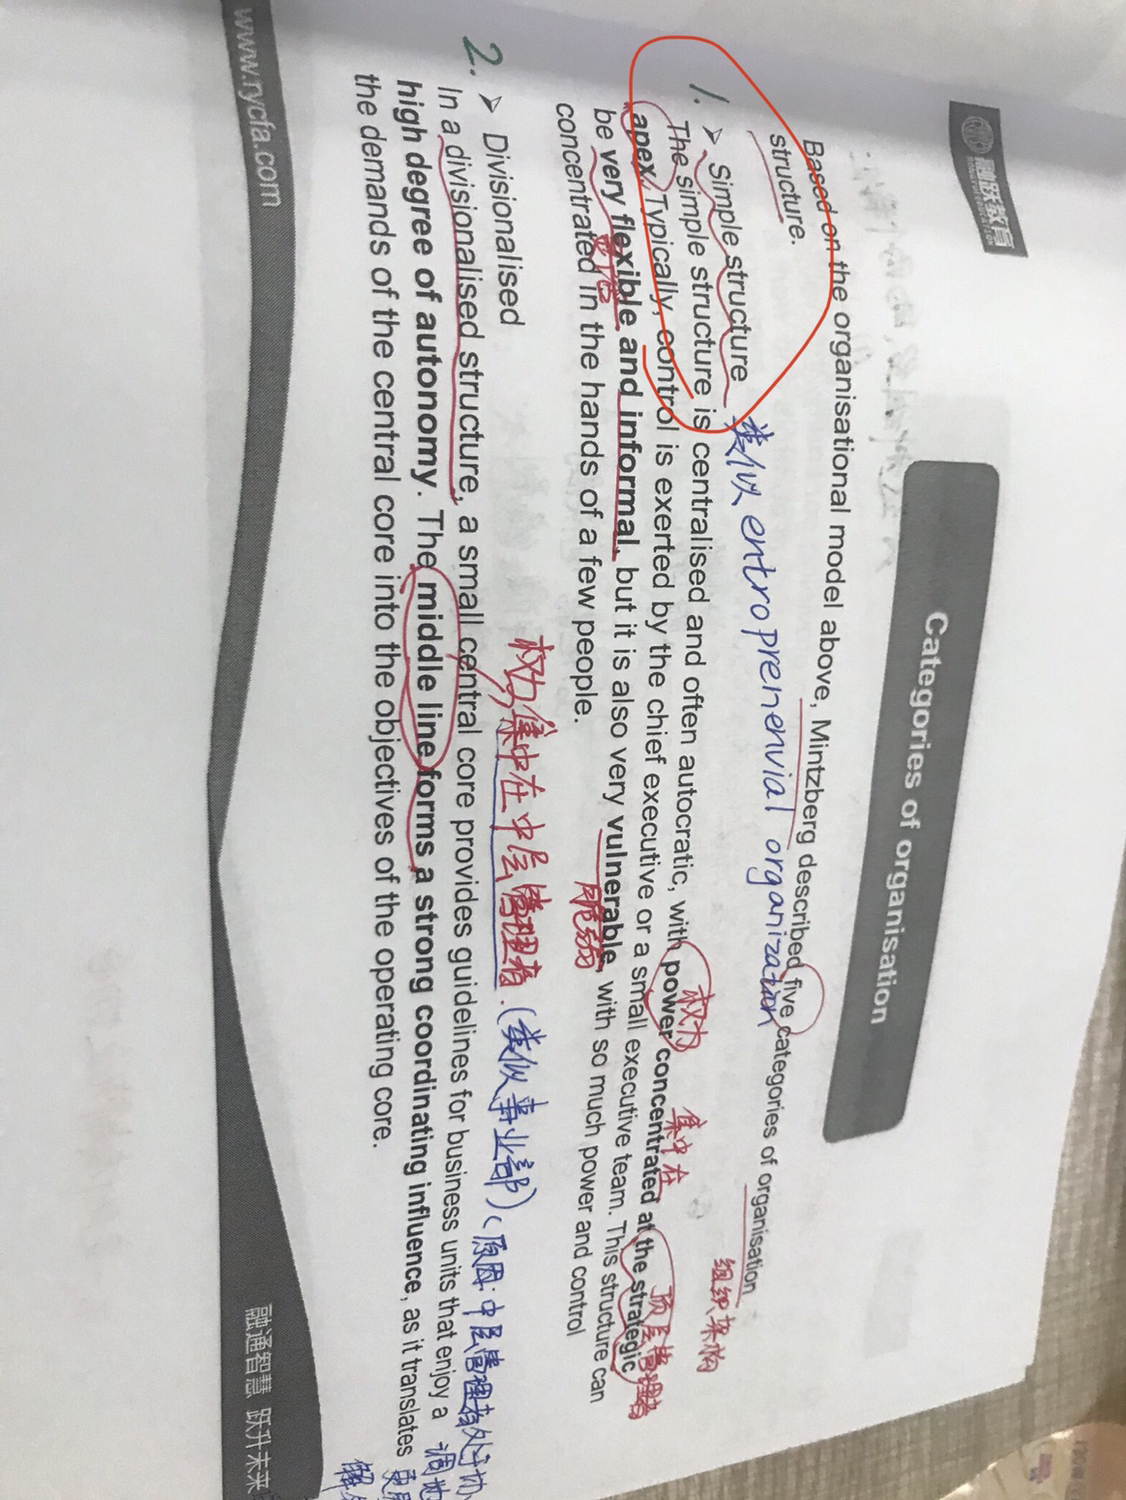 融跃教育
Categories of organisation
Based on the organisational model above, Mintzberg described five categories of organisation
structure.
组织架构
1. ➤ Simple structure 类似 entroprenenvial organization
权力 集中在 顶层管理者
The simple structure is centralised and often autocratic, with power concentrated at the strategic
apex. Typically, control is exerted by the chief executive or a small executive team. This structure can
be very flexible and informal, but it is also very vulnerable, with so much power and control
脆弱
concentrated in the hands of a few people.
2. ➤ Divisionalised 权力集中在中层管理者. (类似事业部) (原因:中层管理者处于协
In a divisionalised structure, a small central core provides guidelines for business units that enjoy a
high degree of autonomy. The middle line forms a strong coordinating influence, as it translates
the demands of the central core into the objectives of the operating core.
www.rycfa.com
融通智慧 跃升未来